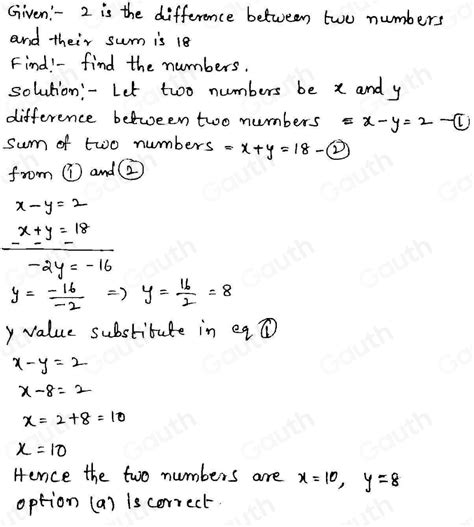 Given:- 2 is the difference between two numbers
and their sum is 18
Find:- find the numbers.
Solution:- Let two numbers be x and y
difference between two numbers = x-y=2 -①
Sum of two numbers = x+y=18-②
from ① and ②
x-y=2
x+y=18
- - -
-2y=-16
y = -16/-2 => y = 16/2 = 8
y value substitute in eq ①
x-y=2
x-8=2
x=2+8=10
x=10
Hence the two numbers are x=10, y=8
option (a) is correct.
Gauth